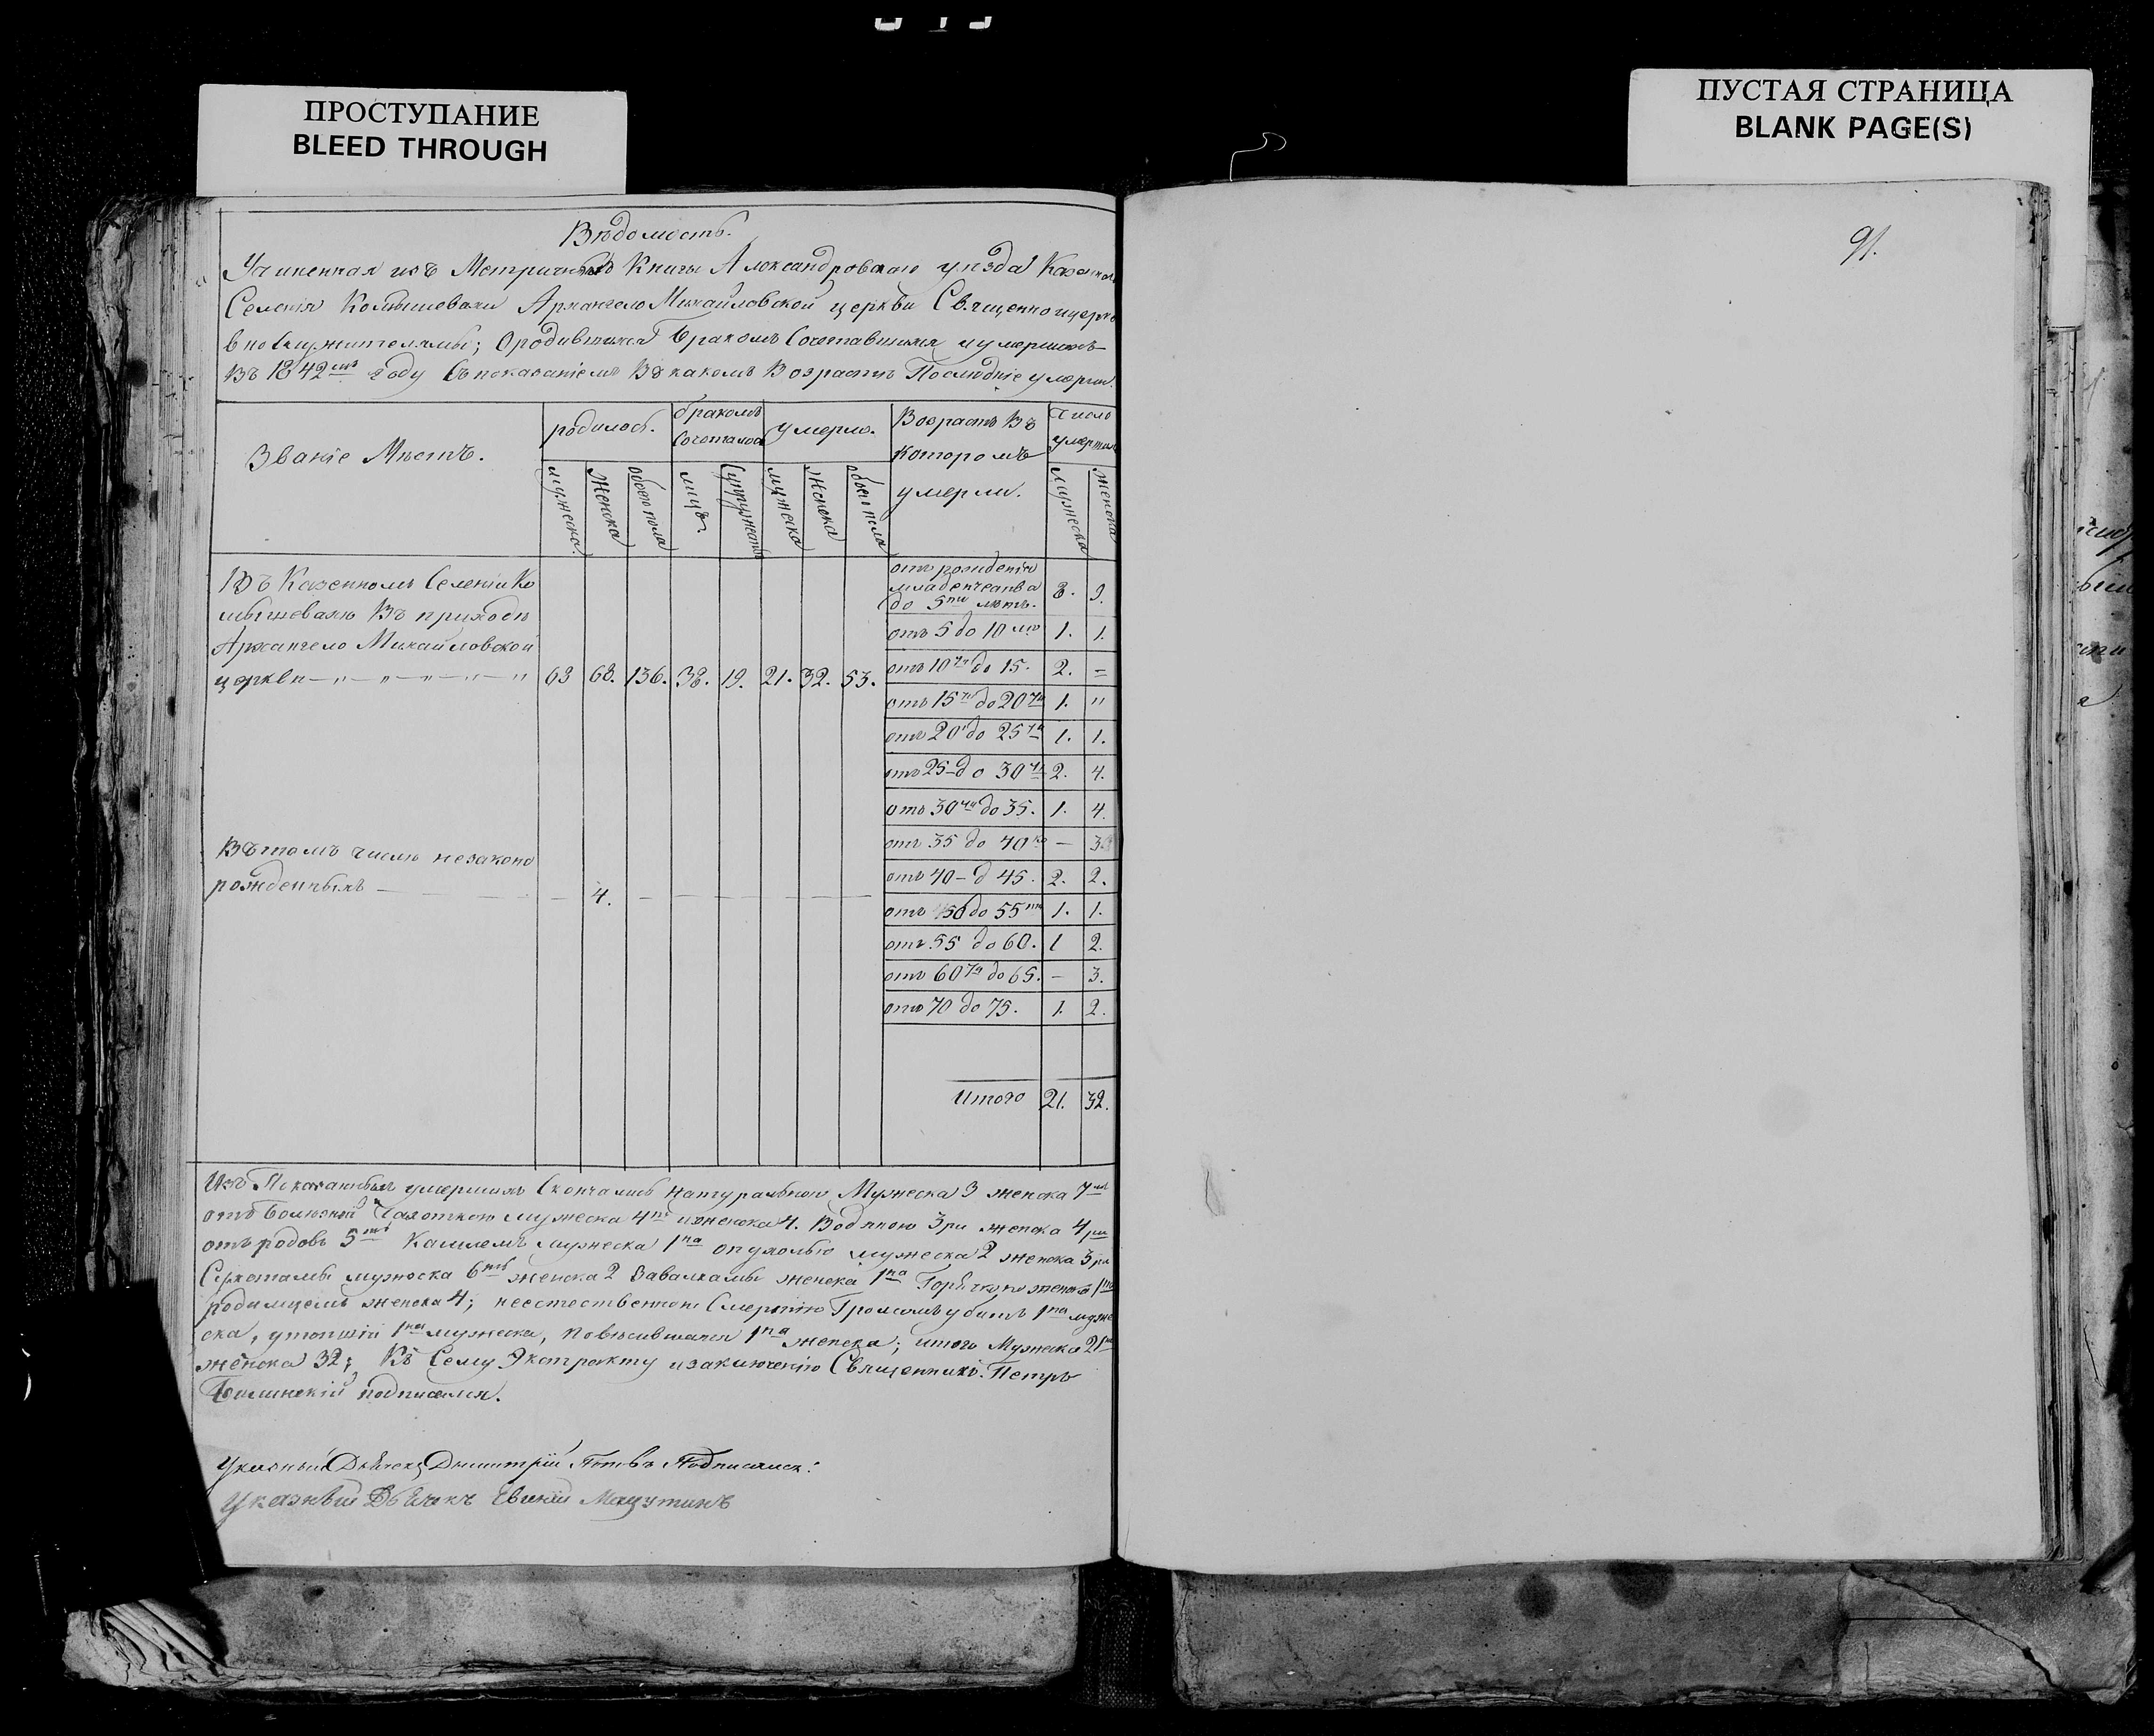 ПРОСТУПАНИЕ
BLEED THROUGH
ПУСТАЯ СТРАНИЦА
BLANK PAGE(S)
91.
Вѣдомость.
Учиненная изъ Метричной Книги Александровскаго уѣзда
Селенія Комышевахи Архангело Михайловской церкви
о родившихся бракомъ сочетавшихся и умершихъ
Въ 1842мъ году съ показаніемъ Въ какомъ Возрастѣ Послѣдніе умерли.
Званіе Мѣстъ.
родилось.
бракомъ сочеталось
умерло.
Возрастъ Въ которомъ умерли.
число умершихъ
мужеска.
женска
обоего пола
лицъ.
супружествъ
мужеска
женска
обоего пола
мужеска
женска
Въ Казенномъ Селеніи Ко
мышевахѣ Въ приходѣ
Архангело Михайловской
церкви 68 68. 136. 38. 19. 21. 32. 53.
отъ рожденія
младенчества
до 5ти лѣтъ. 8. 9.
отъ 5 до 10 1. 1.
отъ 10ти до 15. 2. =
отъ 15ти до 20ти 1. "
отъ 20 до 25ти 1. 1.
отъ 25 до 30ти 2. 4.
отъ 30ти до 35. 1. 4.
отъ 35 до 40 — 3
отъ 40 - д 45. 2. 2.
отъ 50 до 55ти 1. 1.
отъ 55 до 60. 1 2.
отъ 60ти до 65. — 3.
отъ 70 до 75. 1. 2.
Въ томъ числѣ незаконо
рожденныхъ — 4. —
Итого 21. 32.
Изъ Показанныхъ умершихъ Скончались натурально Мужеска 3 женска 7
отъ болѣзней Чахоткою мужеска 4 женска 4. Водяною 3ри женска 4ри
отъ родовъ 5ть Кашлемъ мужеска 1на опухолью мужеска 2 женска 3ри
Сухотами мужеска 6ть женска 2 Завалками женска 1на Горячкою женска 1на
родимцемъ женска 4; неестественною Смертію Громомъ убитъ 1на муже
ска, утопшій 1на мужеска, повѣсившаяся 1на женска; итого Мужеска 21
женска 32; Къ Сему Экстракту и заключенію Священникъ Петръ
подписался.
Указный Дьячекъ Димитрій Подписался:
Указный Дьячокъ